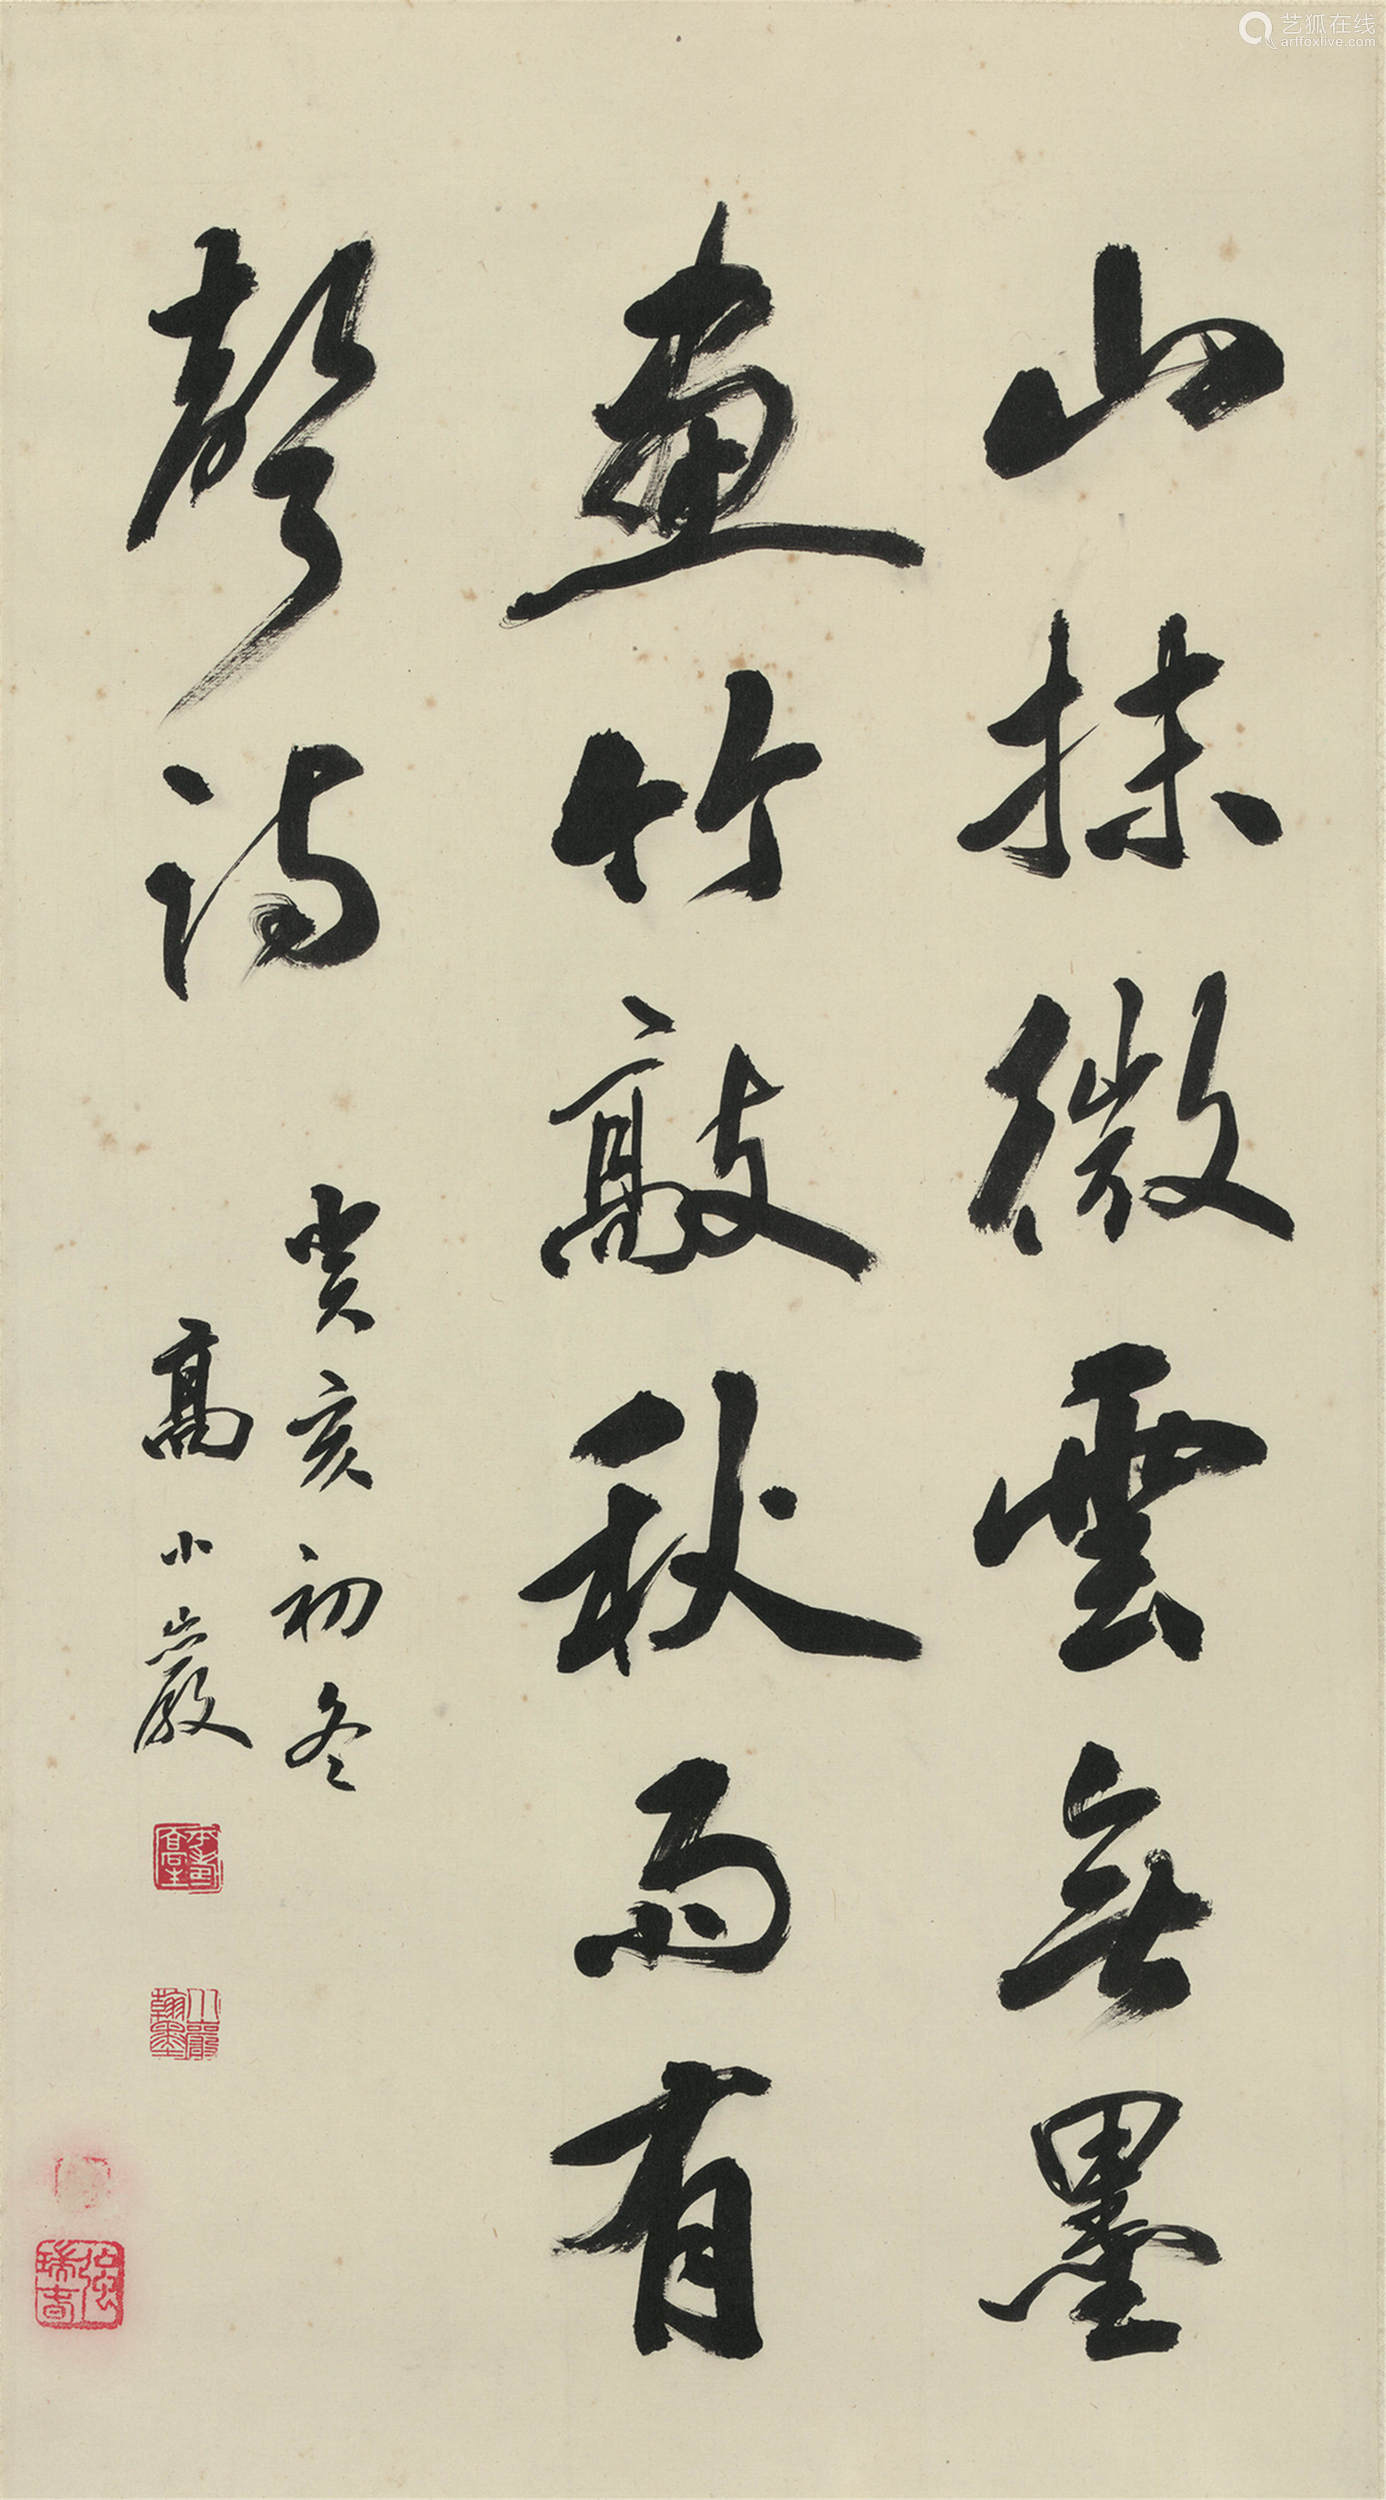 山抹微雲無墨
畫竹敲秋雨有
聲詩
癸亥初冬
高小巖
小巖翰墨
艺狐在线
artfoxlive.com